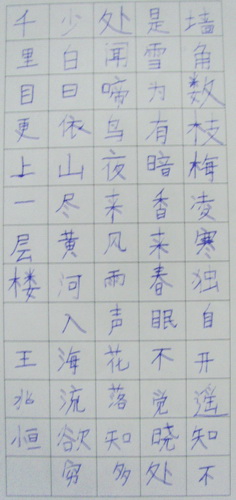 墙角数枝梅凌寒独自开遥知不
是雪为有暗香菜春眠不觉晓处
处闻啼鸟夜来风雨声花落知多
少白日依山尽黄河入海流欲穷
千里目更上一层楼 王兆恒